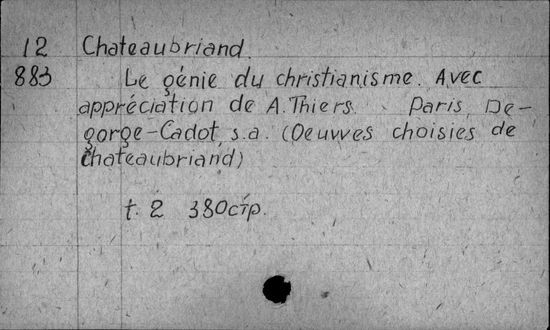 12 Chateaubriand.
883 Le génie du christianisme. Avec
appréciation de A. Thiers. Paris, De-
gorge-Cadot, s.a. (Oeuvves choisies de
Chateaubriand)
t. 2 380стр.